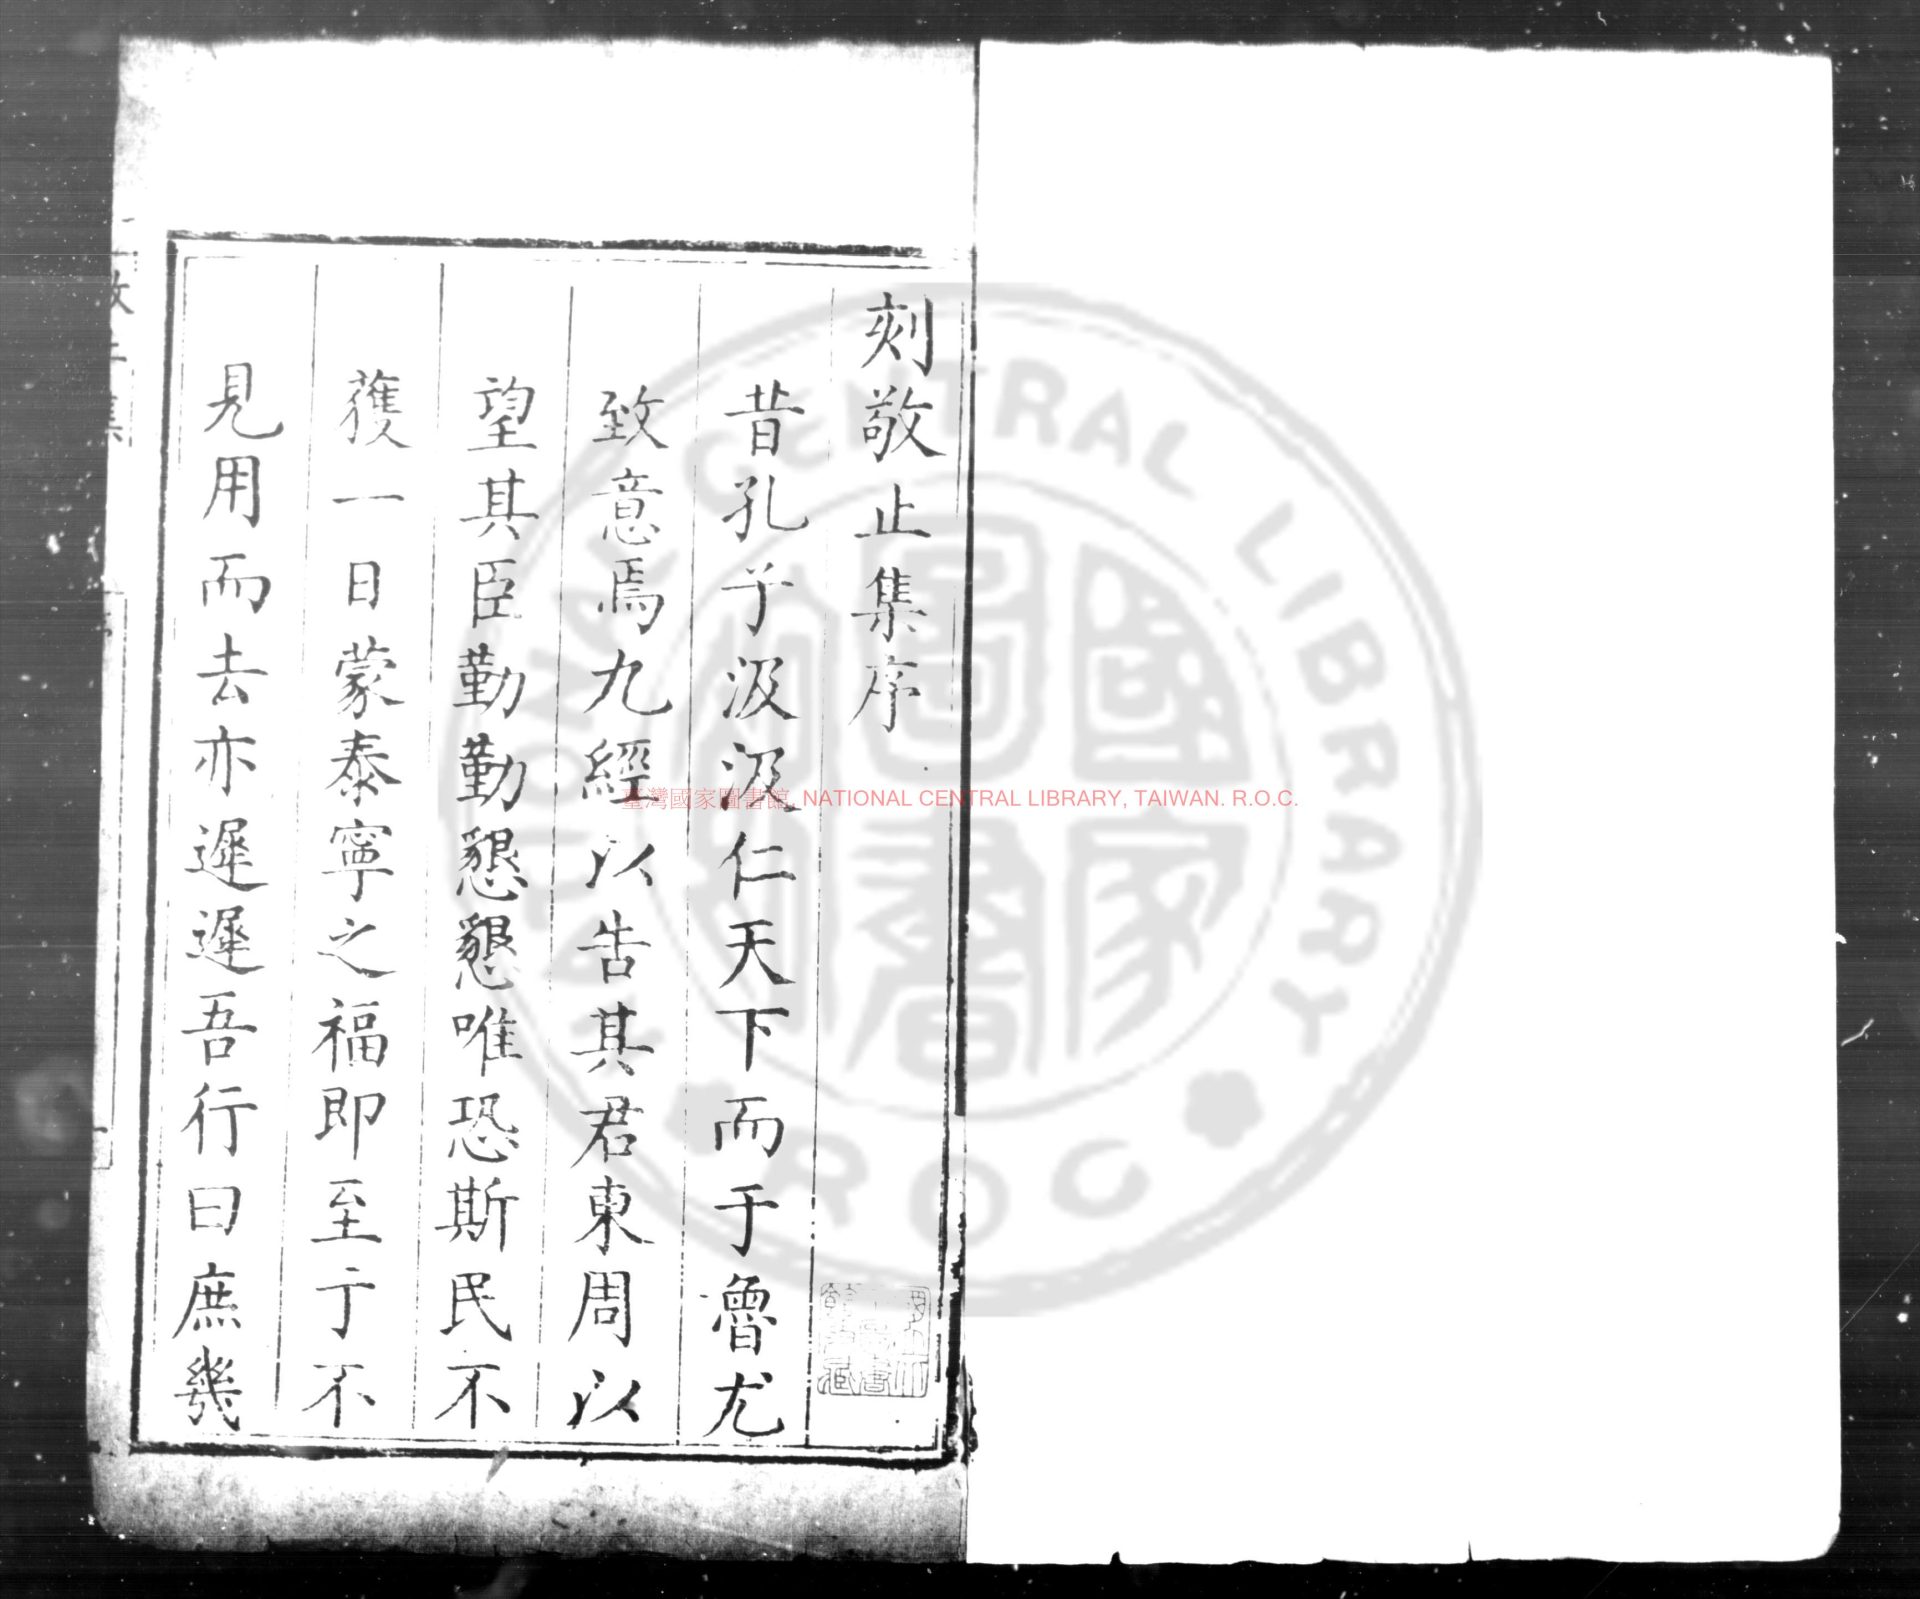 刻敬止集序
昔孔子汲汲仁天下而于魯尤
致意焉九經以告其君東周以
望其臣勤勤懇懇唯恐斯民不
獲一日蒙泰寧之福即至于不
見用而去亦遲遲吾行曰庶幾
臺灣國家圖書館, NATIONAL CENTRAL LIBRARY, TAIWAN. R.O.C.
NATIONAL CENTRAL LIBRARY
國家圖書
ROC